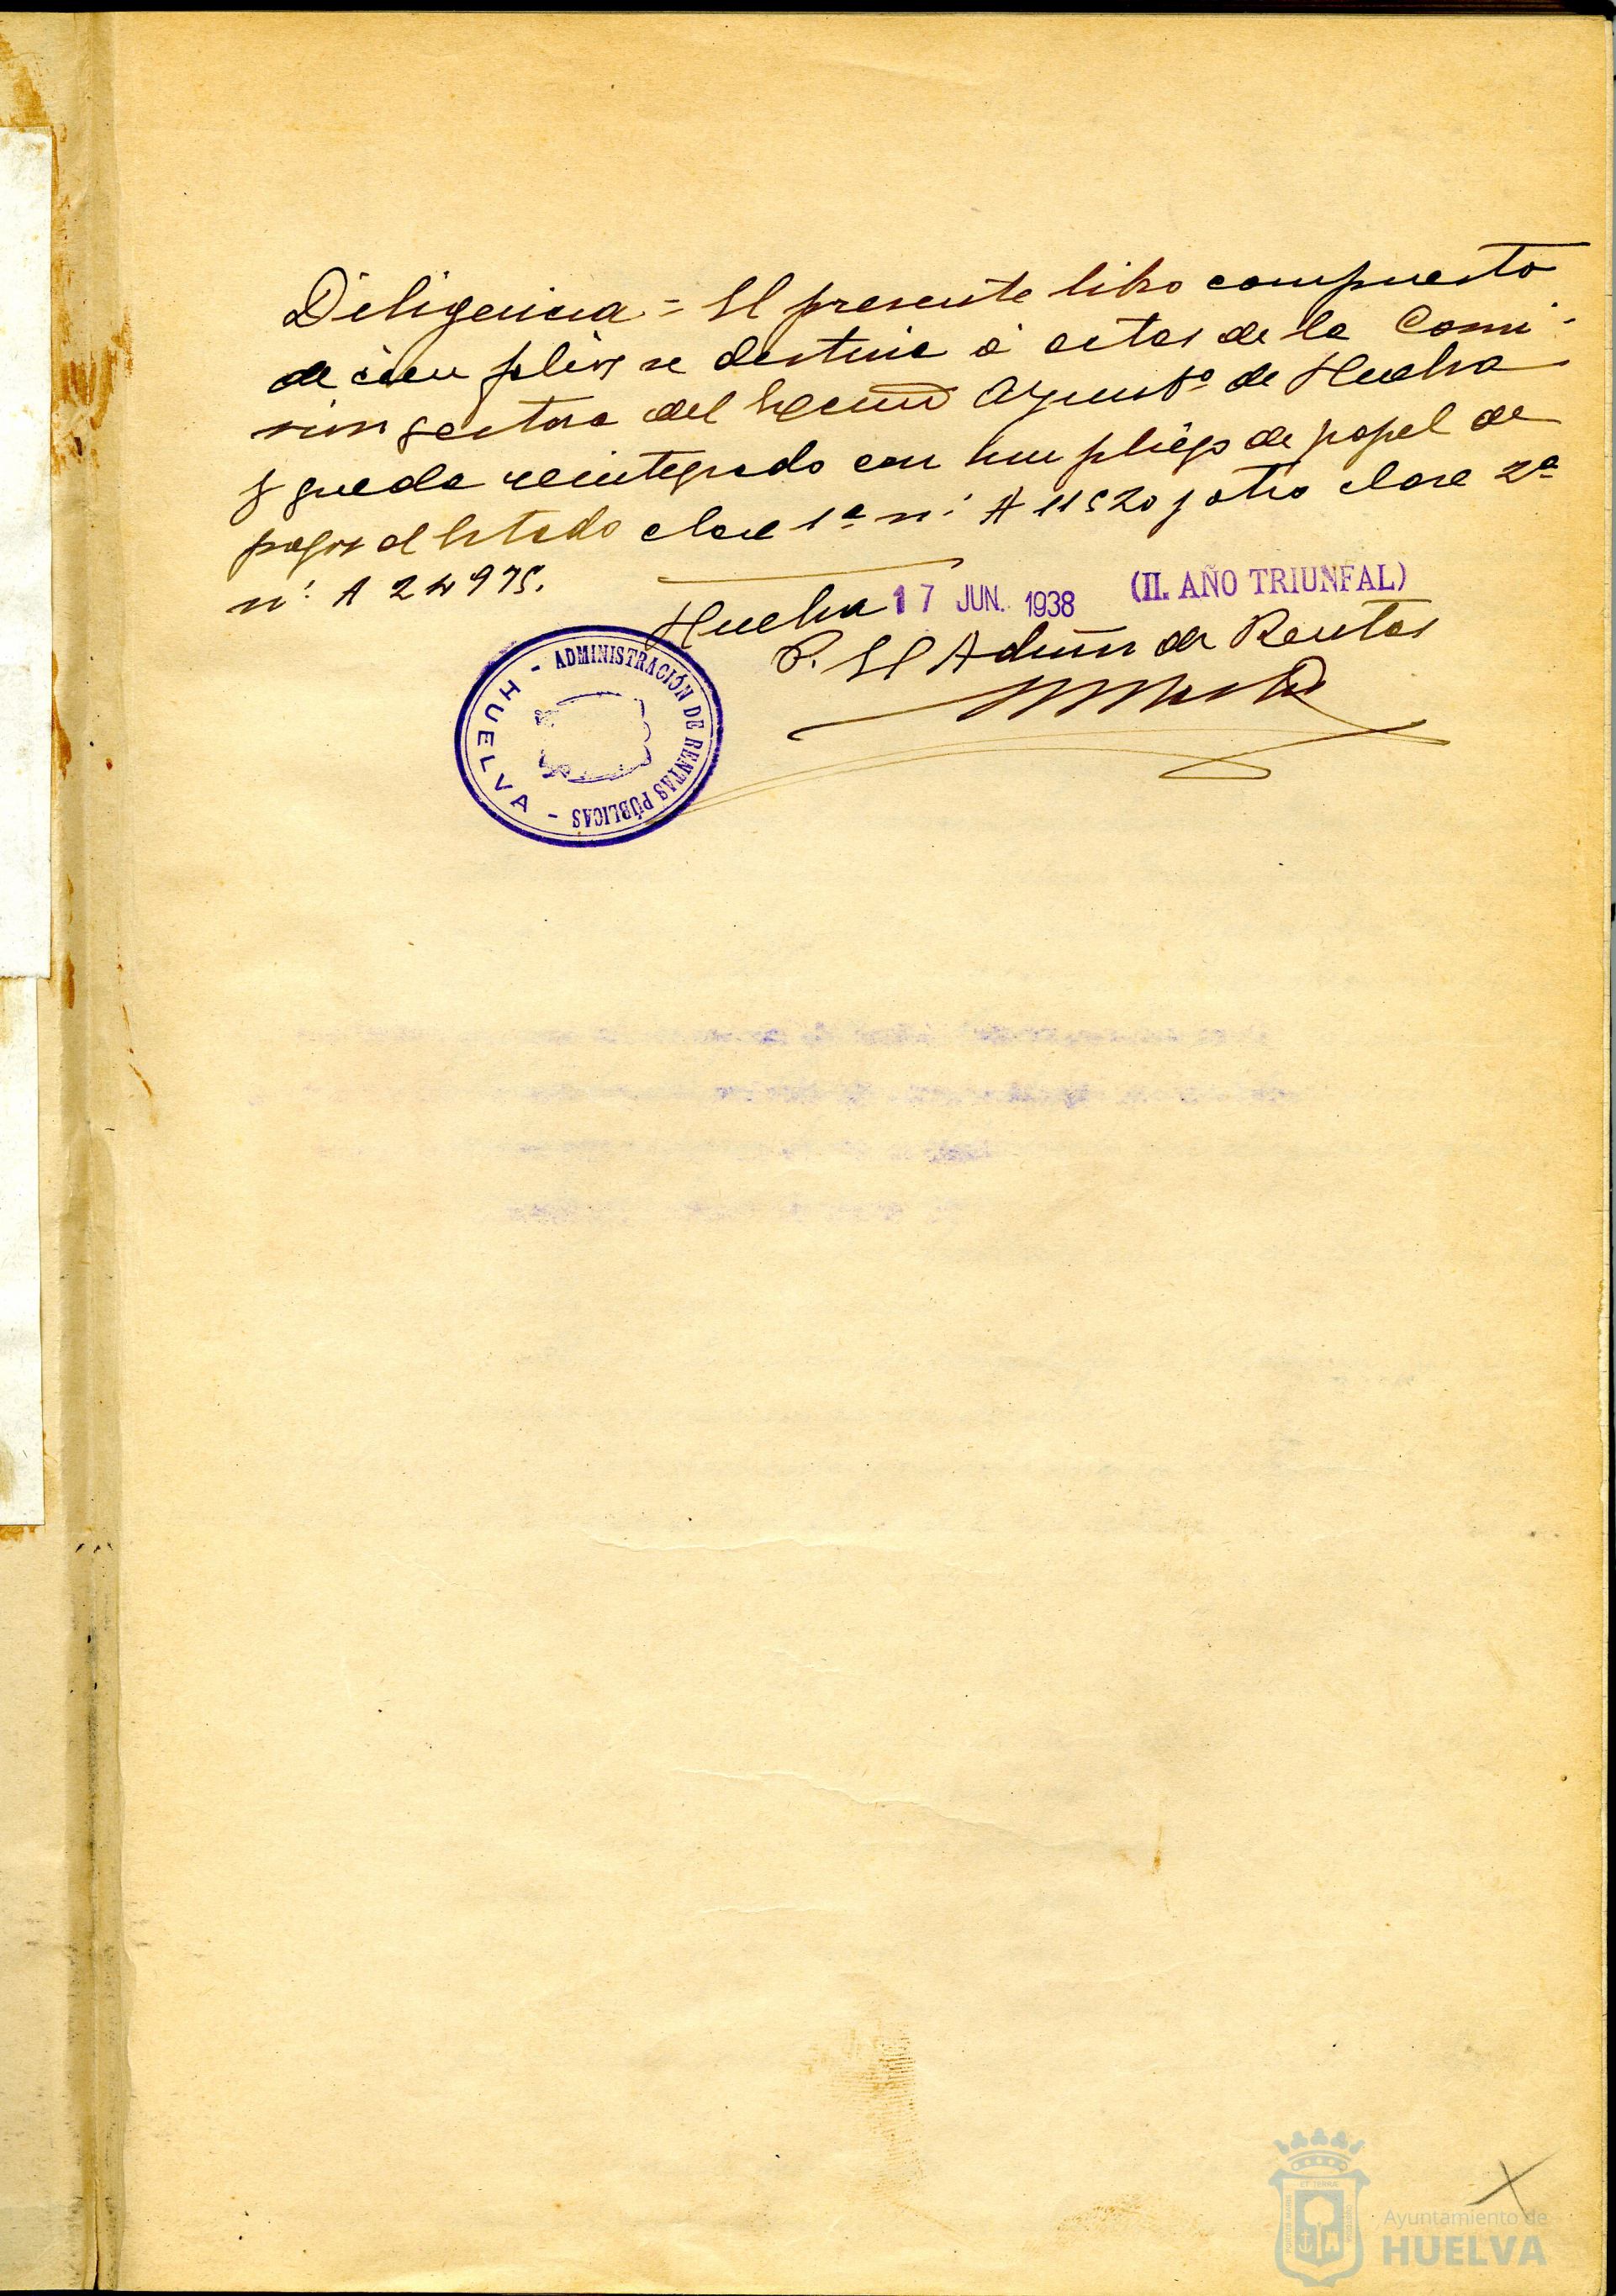 Diligencia = El presente libro compuesto
de cien folios se destina á actas de la Comi-
sión gestora del Excmo Ayuntº de Huelva
y queda reintegrado con un pliego de papel de
pagos al Estado clase 1ª nº A 11520 y otro clase 2ª
nº A 24975.
Huelva 17 JUN. 1938 (II. AÑO TRIUNFAL)
P. El Admon de Rentas
- ADMINISTRACIÓN DE RENTAS PÚBLICAS -
HUELVA
Ayuntamiento de
HUELVA